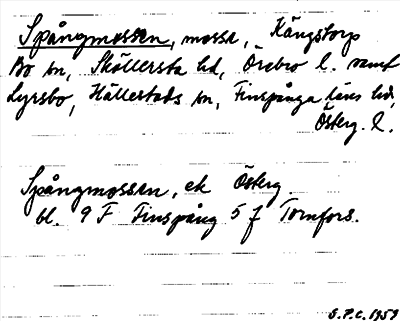 Spångmossen, mossa, Kängstorp
Bo sn, Sköllersta hd, Örebro l. samt
Lyrsbo, Hällestads sn, Finspånga läns hd,
Österg. l.
Spångmossen, ek Österg.
bl. 9 F Finspång 5 f Tornfors.
S.P.C. 1959